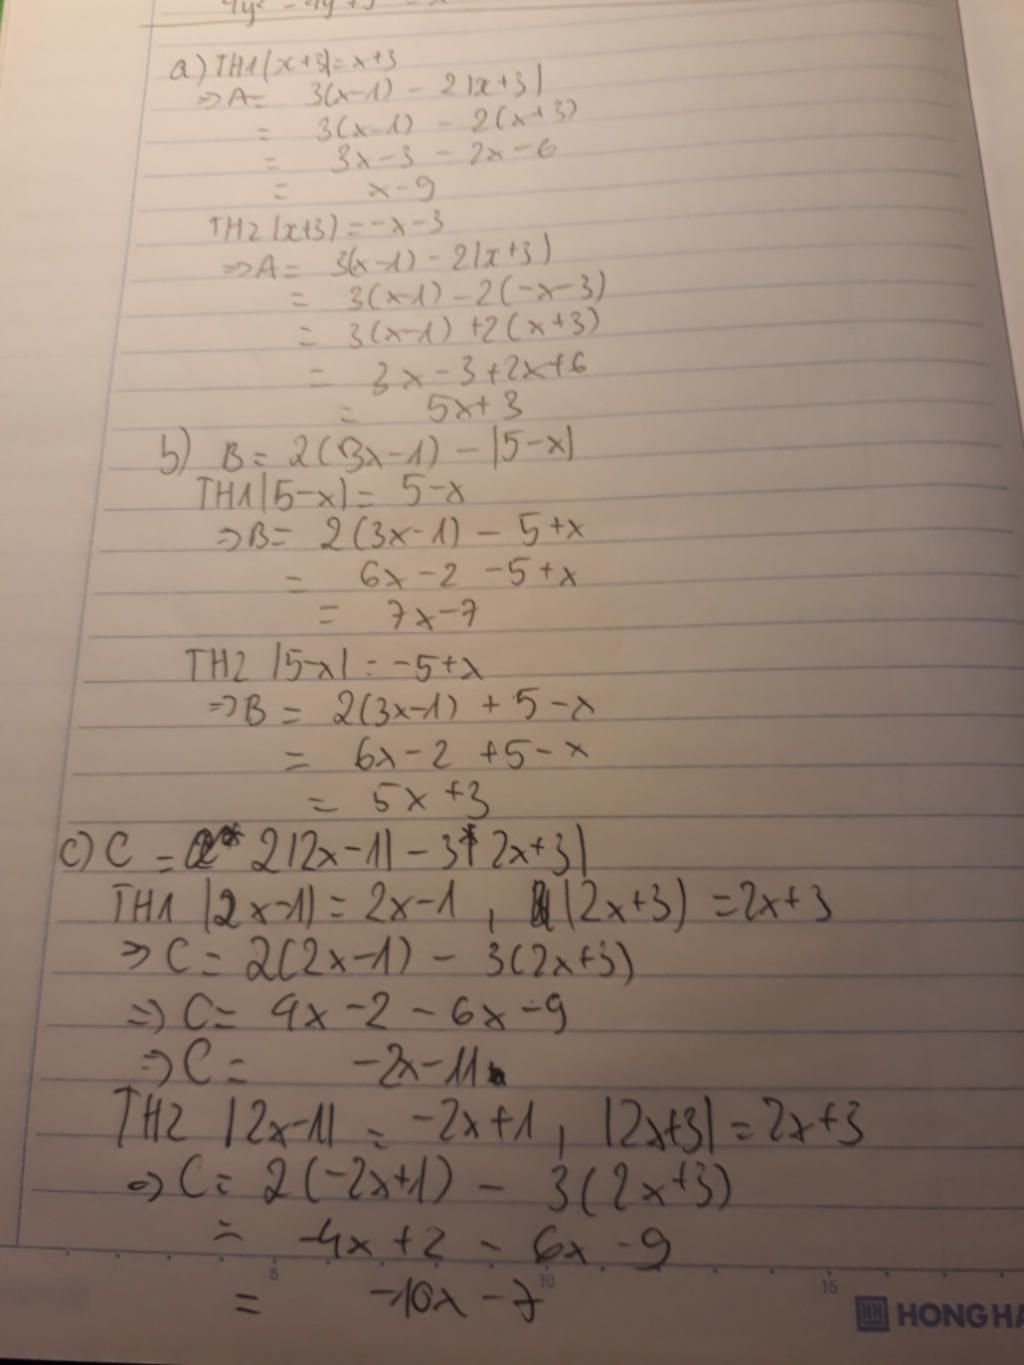 a) TH1 |x+3|=x+3
=> A= 3(x-1) - 2|x+3|
= 3(x-1) - 2(x+3)
= 3x-3 - 2x-6
= x-9
TH2 |x+3) = -x-3
=> A= 3(x-1) - 2|x+3)
= 3(x-1) - 2(-x-3)
= 3(x-1) +2(x+3)
= 3x-3+2x+6
= 5x+3
b) B= 2(3x-1) - |5-x|
TH1 |5-x| = 5-x
=> B= 2(3x-1) - 5+x
= 6x-2 -5+x
= 7x-7
TH2 |5-x| = -5+x
=> B = 2(3x-1) + 5-x
= 6x-2 +5-x
= 5x+3
c) C = 2|2x-1| - 3|2x+3|
TH1 |2x-1) = 2x-1 , |2x+3) = 2x+3
=> C = 2(2x-1) - 3(2x+3)
=> C= 4x-2 - 6x-9
=> C= -2x-11
TH2 |2x-1| = -2x+1 , |2x+3| = 2x+3
=> C= 2(-2x+1) - 3(2x+3)
= -4x+2 - 6x-9
= -10x-7
5 10 15
HONG HA